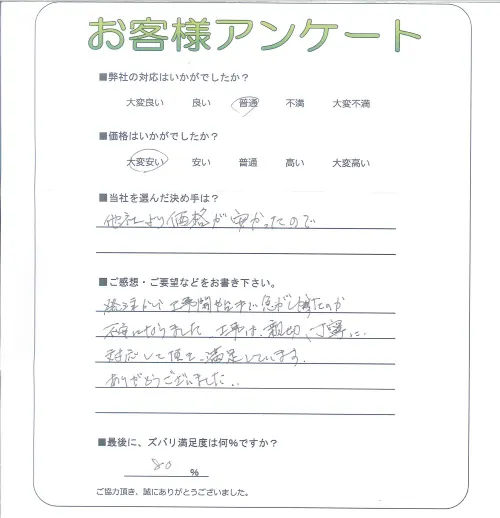 お客様アンケート
■弊社の対応はいかがでしたか?
大変良い 良い 普通 不満 大変不満
■価格はいかがでしたか?
大変安い 安い 普通 高い 大変高い
■当社を選んだ決め手は?
他社より価格が安かったので
■ご感想・ご要望などをお書き下さい。
工事
不安になりました 工事は、親切、丁寧に
対応して頂き、満足しています。
ありがとうございました..
■最後に、ズバリ満足度は何%ですか?
80 %
ご協力頂き、誠にありがとうございました。